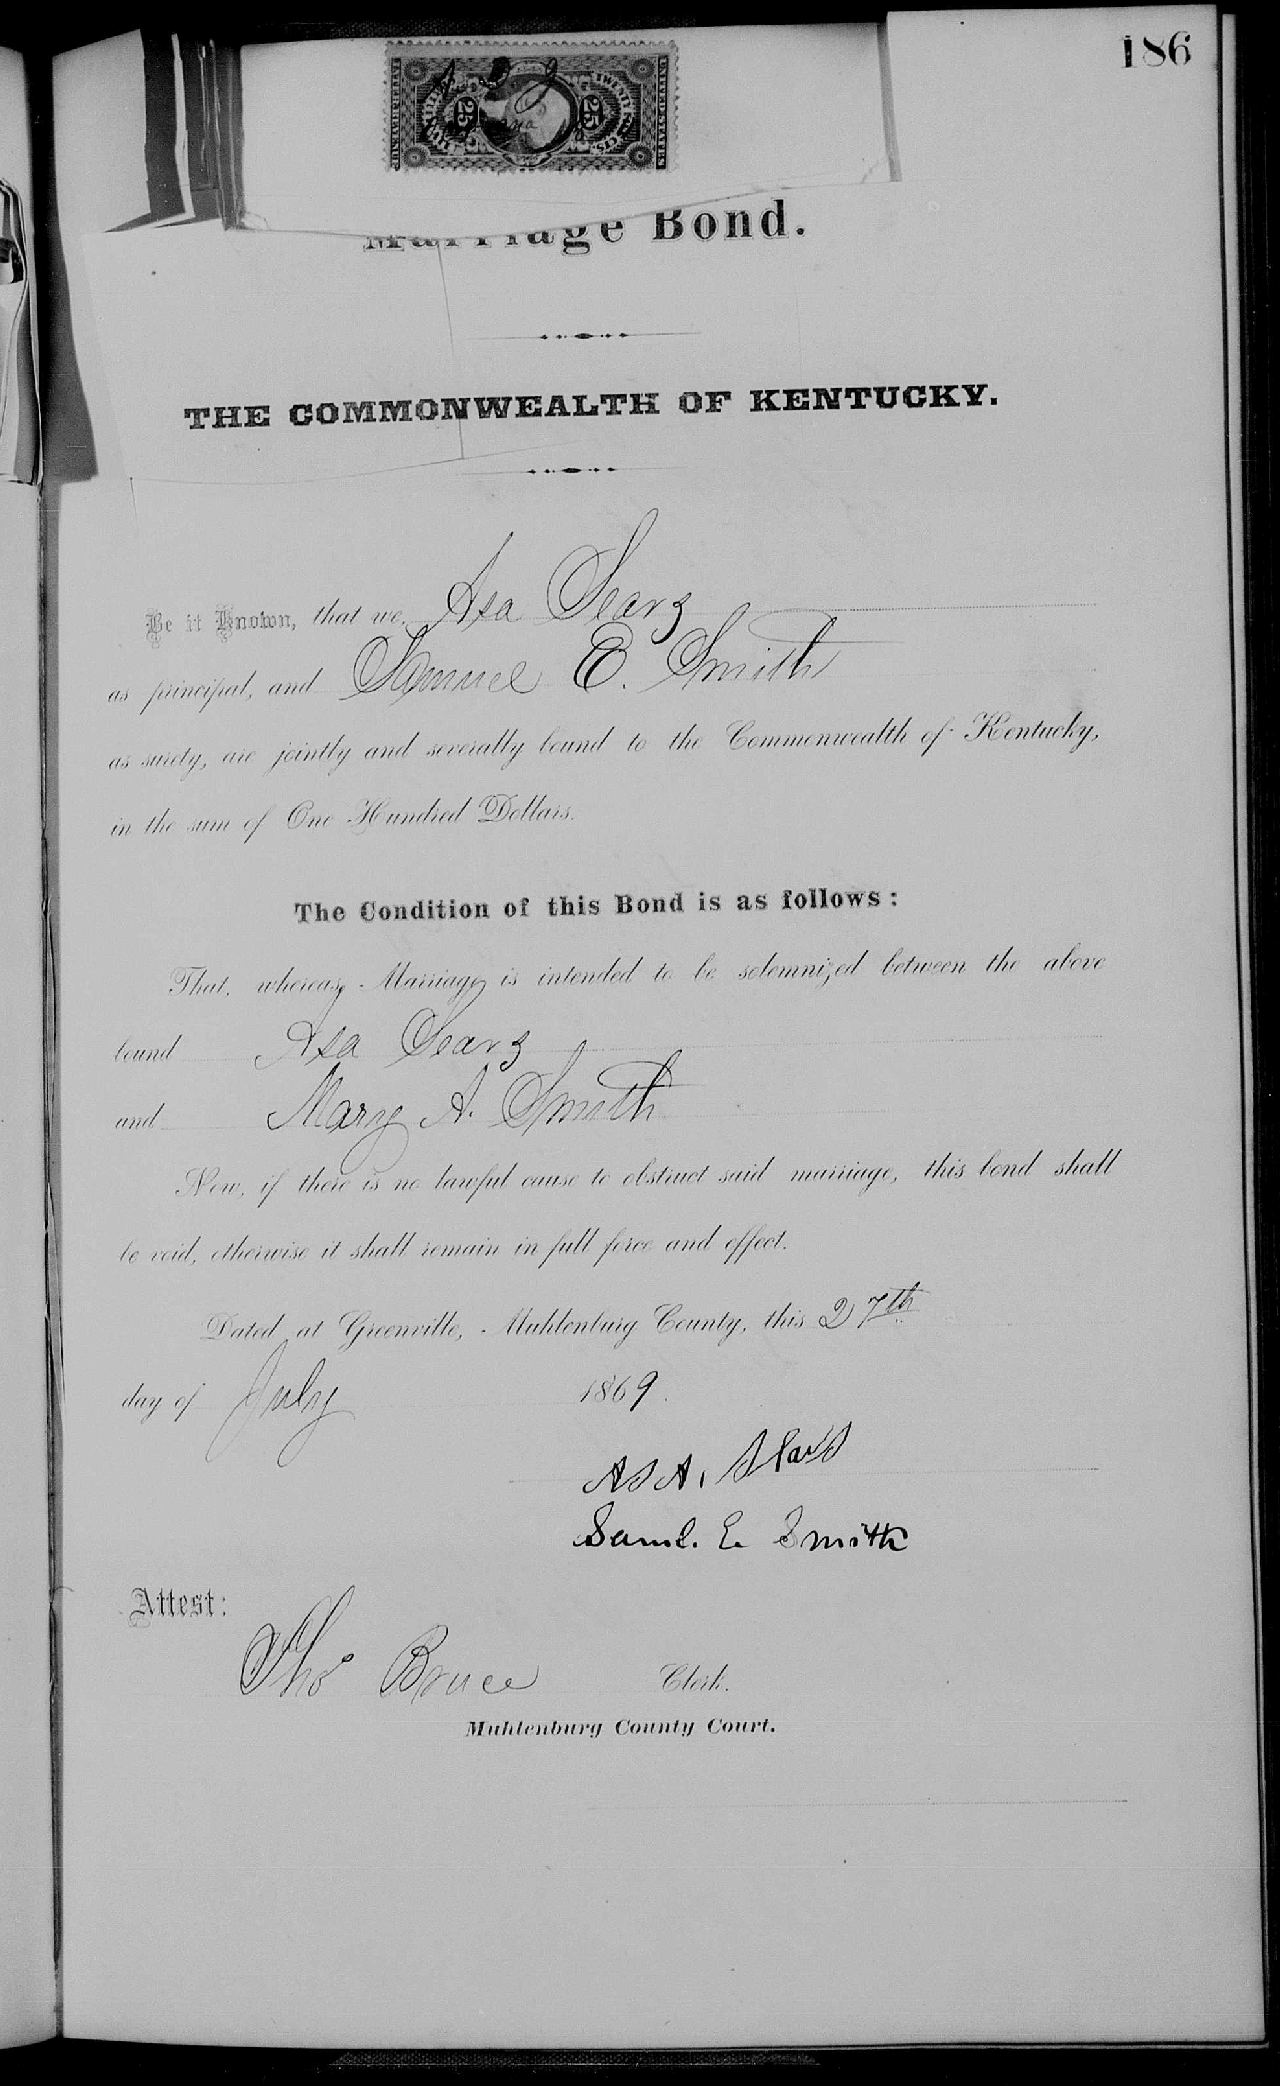 186
UNITED STATES
TWENTY FIVE CTS.
25 25
INTER. REVENUE
Marriage Bond.
THE COMMONWEALTH OF KENTUCKY.
Be it Known, that we, Asa Searz
as principal, and Samuel E. Smith
as surety, are jointly and severally bound to the Commonwealth of Kentucky,
in the sum of One Hundred Dollars.
The Condition of this Bond is as follows:
That, whereas, Marriage is intended to be solemnized between the above
bound Asa Searz
and Mary A. Smith
Now, if there is no lawful cause to obstruct said marriage, this bond shall
be void, otherwise it shall remain in full force and effect.
Dated at Greenville, Muhlenburg County, this 27th
day of July 1869.
ASA,
Saml. E. Smith
Attest:
Thos Bruce Clerk.
Muhlenburg County Court.